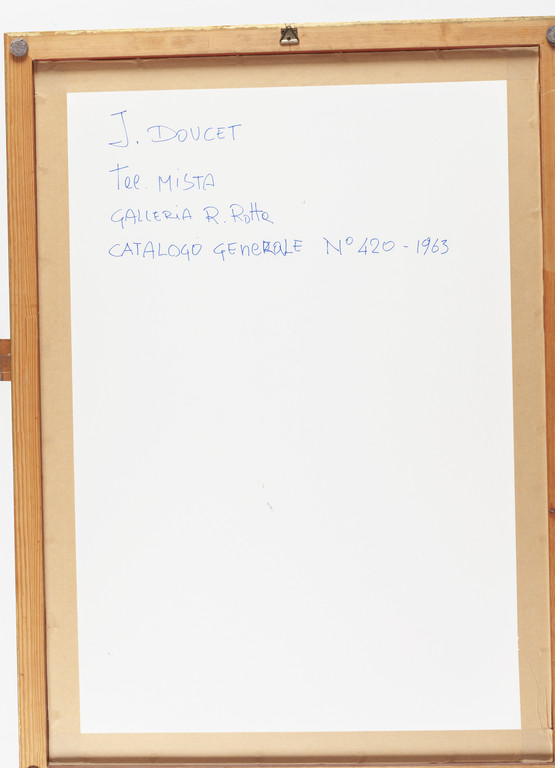 J. DOUCET
Tec. MISTA
GALLERIA R. Rotta
CATALOGO GENERALE N° 420 - 1963